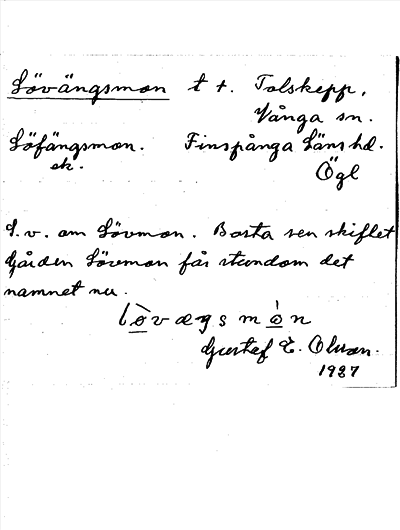 Lövängsmon t t. Tolskepp,
Vånga sn.
Löfängsmon. Finspånga Läns hd.
ek. Ögl
S. v. om Lövmon. Borta sen skiftet
Gården Lövmon får stundom det
namnet nu.
lòvægsmòn
Gustaf E. Olsson.
1937